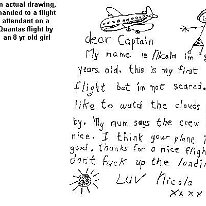 n actual drawing,
handed to a flight
attendant on a
Quantas flight by
an 8 yr old girl
dear Captain
My name is Nicola im
years old, this is my first
flight but im not scared.
like to watch the clouds
by. My mum says the crew
nice. I think your plane i
good. thanks for a nice fligh
dont fuck up the landi
LUV Nicola
XXXX